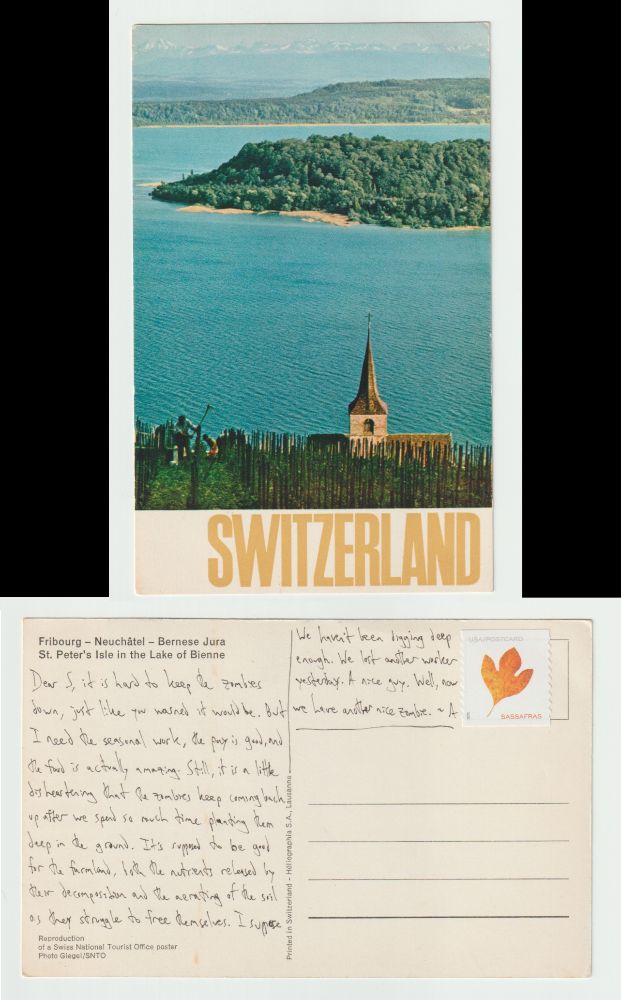 SWITZERLAND
Fribourg – Neuchâtel – Bernese Jura
St. Peter's Isle in the Lake of Bienne
Dear S, it is hard to keep the zombies
down, just like you warned it would be. But
I need the seasonal work, the pay is good, and
the food is actually amazing. Still, it is a little
disheartening that the zombies keep coming back
up after we spend so much time planting them
deep in the ground. It's supposed to be good
for the farmland, both the nutrients released by
their decomposition and the aerating of the soil
as they struggle to free themselves. I suppose
We haven't been digging deep
enough. We lost another worker
yesterday. A nice guy. Well, now
we have another nice zombie. ~ A
USA/POSTCARD
SASSAFRAS
Printed in Switzerland – Héliographia S.A., Lausanne
Reproduction
of a Swiss National Tourist Office poster
Photo Giegel/SNTO